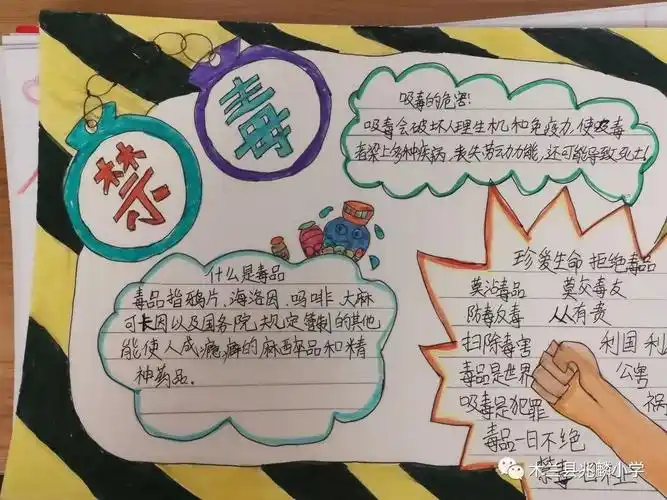 禁毒
吸毒的危害!
吸毒会破坏人理生机和免疫力,使吸毒
者染上多种疾病,丧失劳动力能,还可能导致死亡!
什么是毒品
毒品指鸦片、海洛因、吗啡、大麻
可卡因以及国务院规定管制的其他
能使人成瘾癖的麻醉品和精
神药品。
珍爱生命 拒绝毒品
莫沾毒品 莫交毒友
防毒反毒 人人有责
扫除毒害 利国利
毒品是世界 公害
吸毒是犯罪 祸
毒品一日不绝
禁毒
木兰县兆麟小学